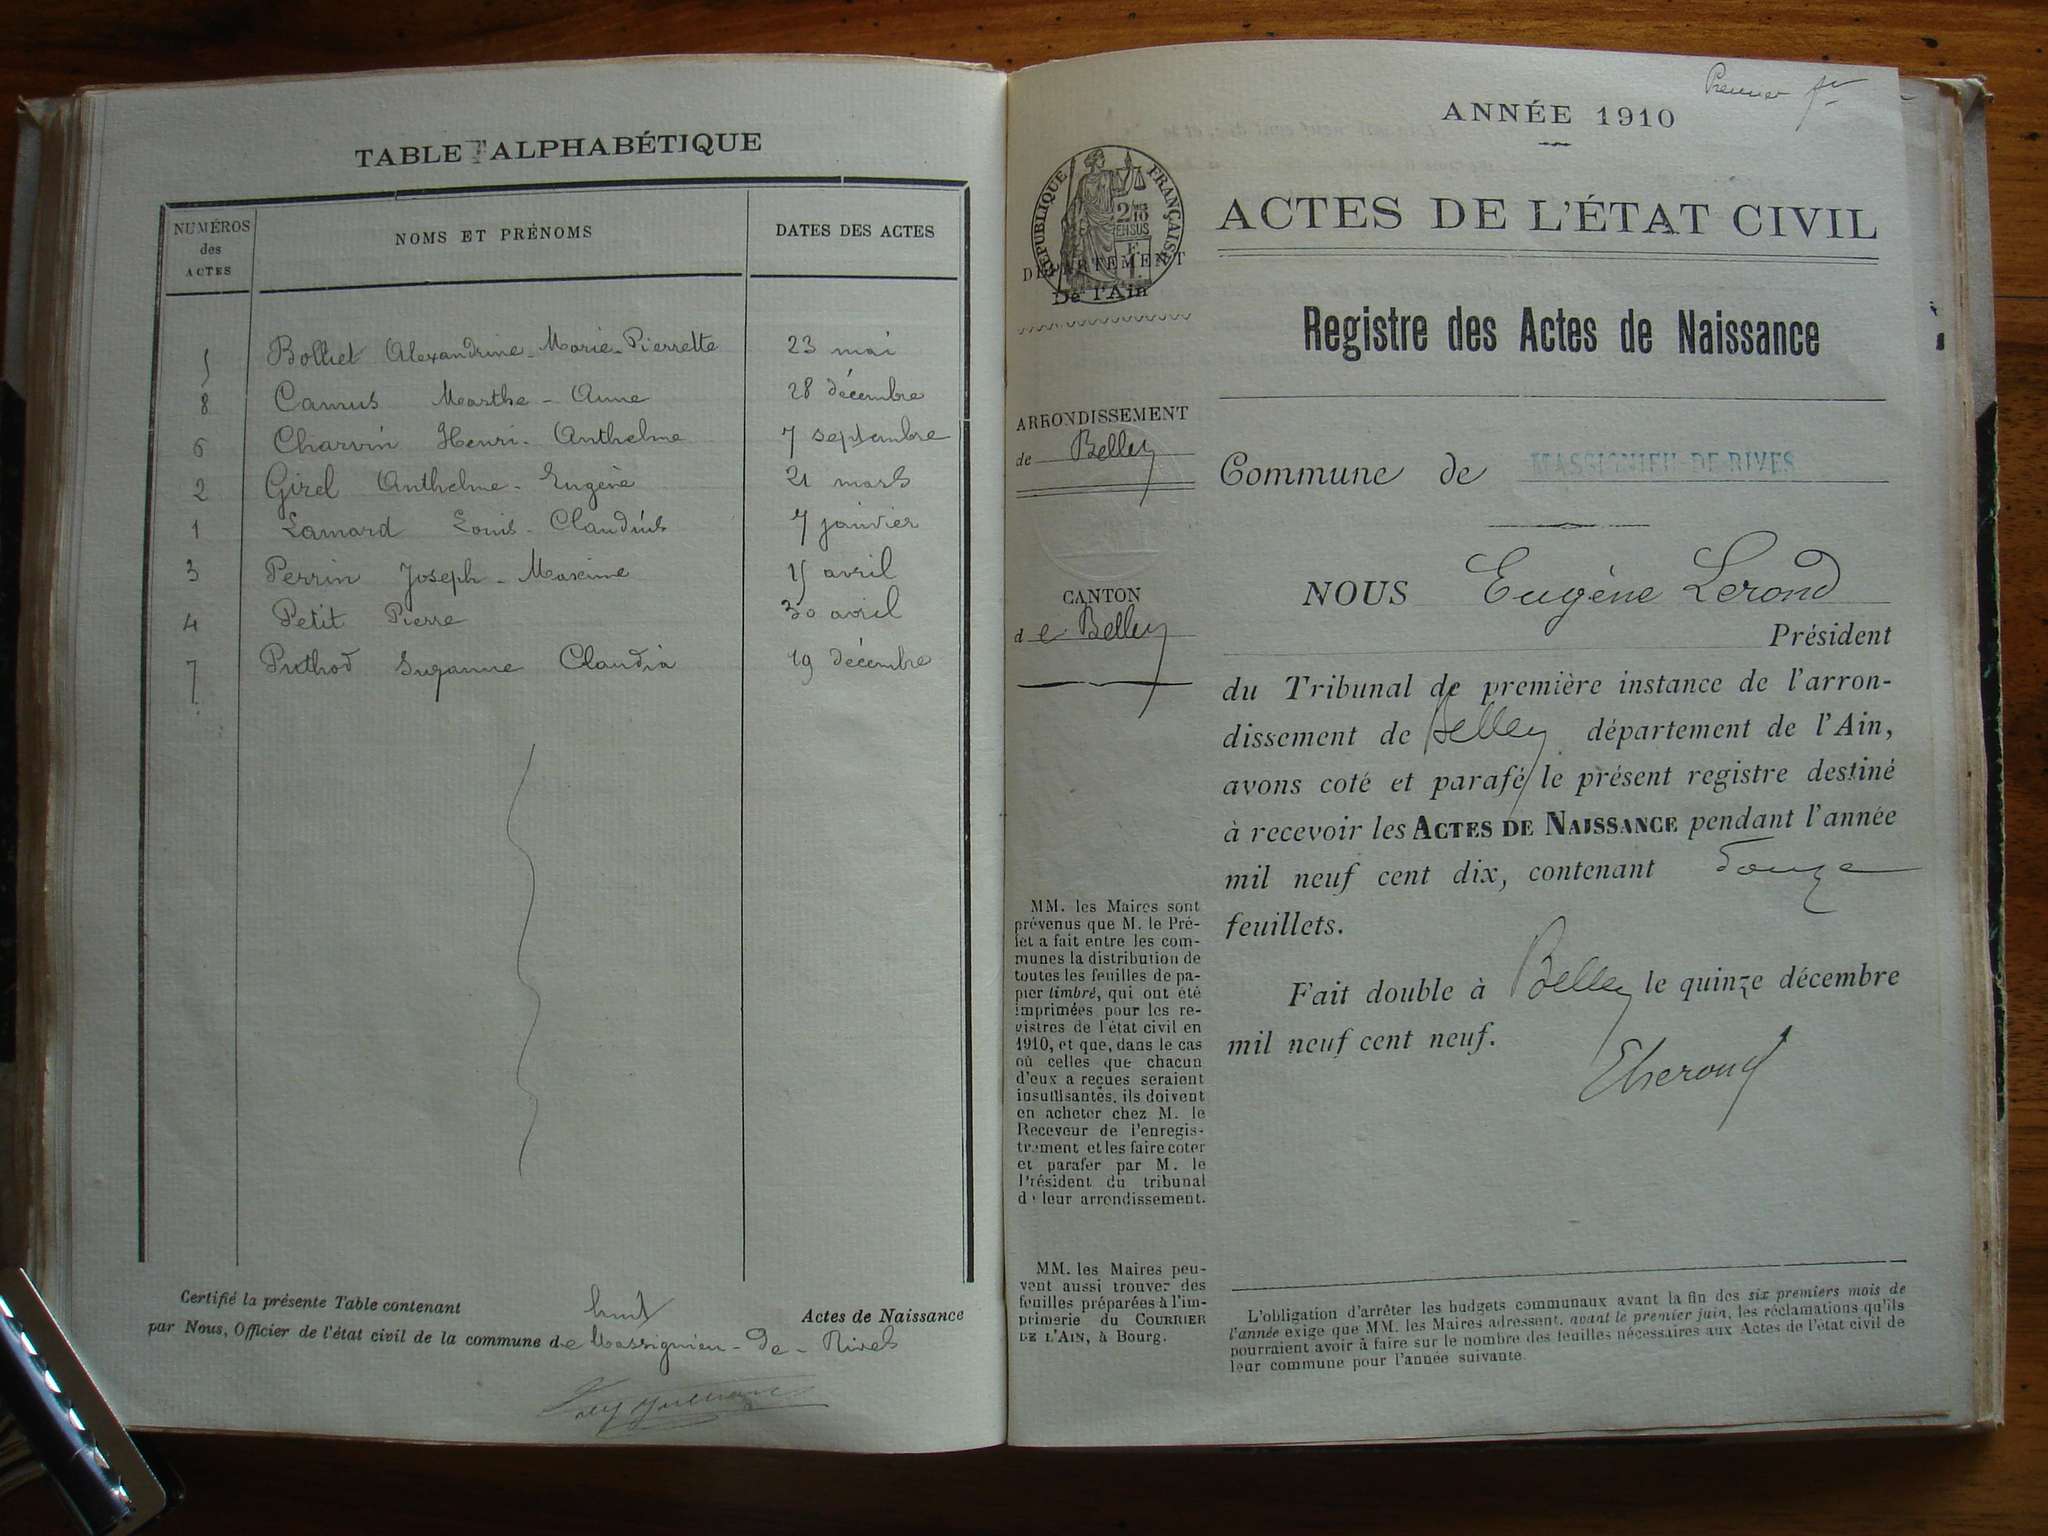 TABLE ALPHABÉTIQUE
NUMÉROS des ACTES
NOMS ET PRÉNOMS
DATES DES ACTES
5 Bolliet Alexandrine-Marie-Pierrette 23 mai
8 Camus Marthe-Anne 28 décembre
6 Charvin Henri-Anthelme 7 septembre
2 Girel Anthelme-Eugène 21 mars
1 Lamard Louis-Claudius 7 janvier
3 Perrin Joseph-Maxime 15 avril
4 Petit Pierre 30 avril
7 Puthod Suzanne Claudia 19 décembre
Certifié la présente Table contenant huit Actes de Naissance
par Nous, Officier de l'état civil de la commune de Massignieu-de-Rives
Premier
ANNÉE 1910
RÉPUBLIQUE FRANÇAISE
ACTES DE L'ÉTAT CIVIL
DÉPARTEMENT
De l'Ain
Registre des Actes de Naissance
ARRONDISSEMENT
de Belley
Commune de MASSIGNIEU-DE-RIVES
CANTON
de Belley
NOUS Eugène Lerond
Président
du Tribunal de première instance de l'arron-
dissement de Belley département de l'Ain,
avons coté et parafé le présent registre destiné
à recevoir les ACTES DE NAISSANCE pendant l'année
mil neuf cent dix, contenant douze
feuillets.
Fait double à Belley le quinze décembre
mil neuf cent neuf.
MM. les Maires sont
prévenus que M. le Pré-
fet a fait entre les com-
munes la distribution de
toutes les feuilles de pa-
pier timbré, qui ont été
imprimées pour les re-
gistres de l'état civil en
1910, et que, dans le cas
où celles que chacun
d'eux a reçues seraient
insuffisantes, ils doivent
en acheter chez M. le
Receveur de l'enregis-
trement et les faire coter
et parafer par M. le
Président du tribunal
de leur arrondissement.
MM. les Maires peu-
vent aussi trouver des
feuilles préparées à l'im-
primerie du COURRIER
DE L'AIN, à Bourg.
L'obligation d'arrêter les budgets communaux avant la fin des six premiers mois de
l'année exige que MM. les Maires adressent, avant le premier juin, les réclamations qu'ils
pourraient avoir à faire sur le nombre des feuilles nécessaires aux Actes de l'état civil de
leur commune pour l'année suivante.